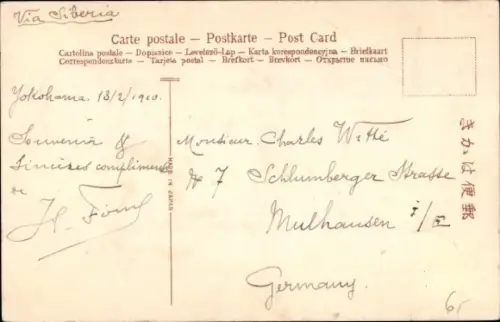 Via Siberia
Carte postale – Postkarte – Post Card
Cartolina postale – Dopisnice – Levelező-Lap – Karta korespondencyjna – Briefkaart
Correspondenzkarte – Tarjeta postal – Brefkort – Brevkort – Открытое письмо
Yokohama. 13/2/1910.
Souvenir &
sincères compliments
de
MADE IN JAPAN
Monsieur Charles Witté
No 7 Schlumberger Strasse
Mulhausen i/E
Germany.
きかは便郵